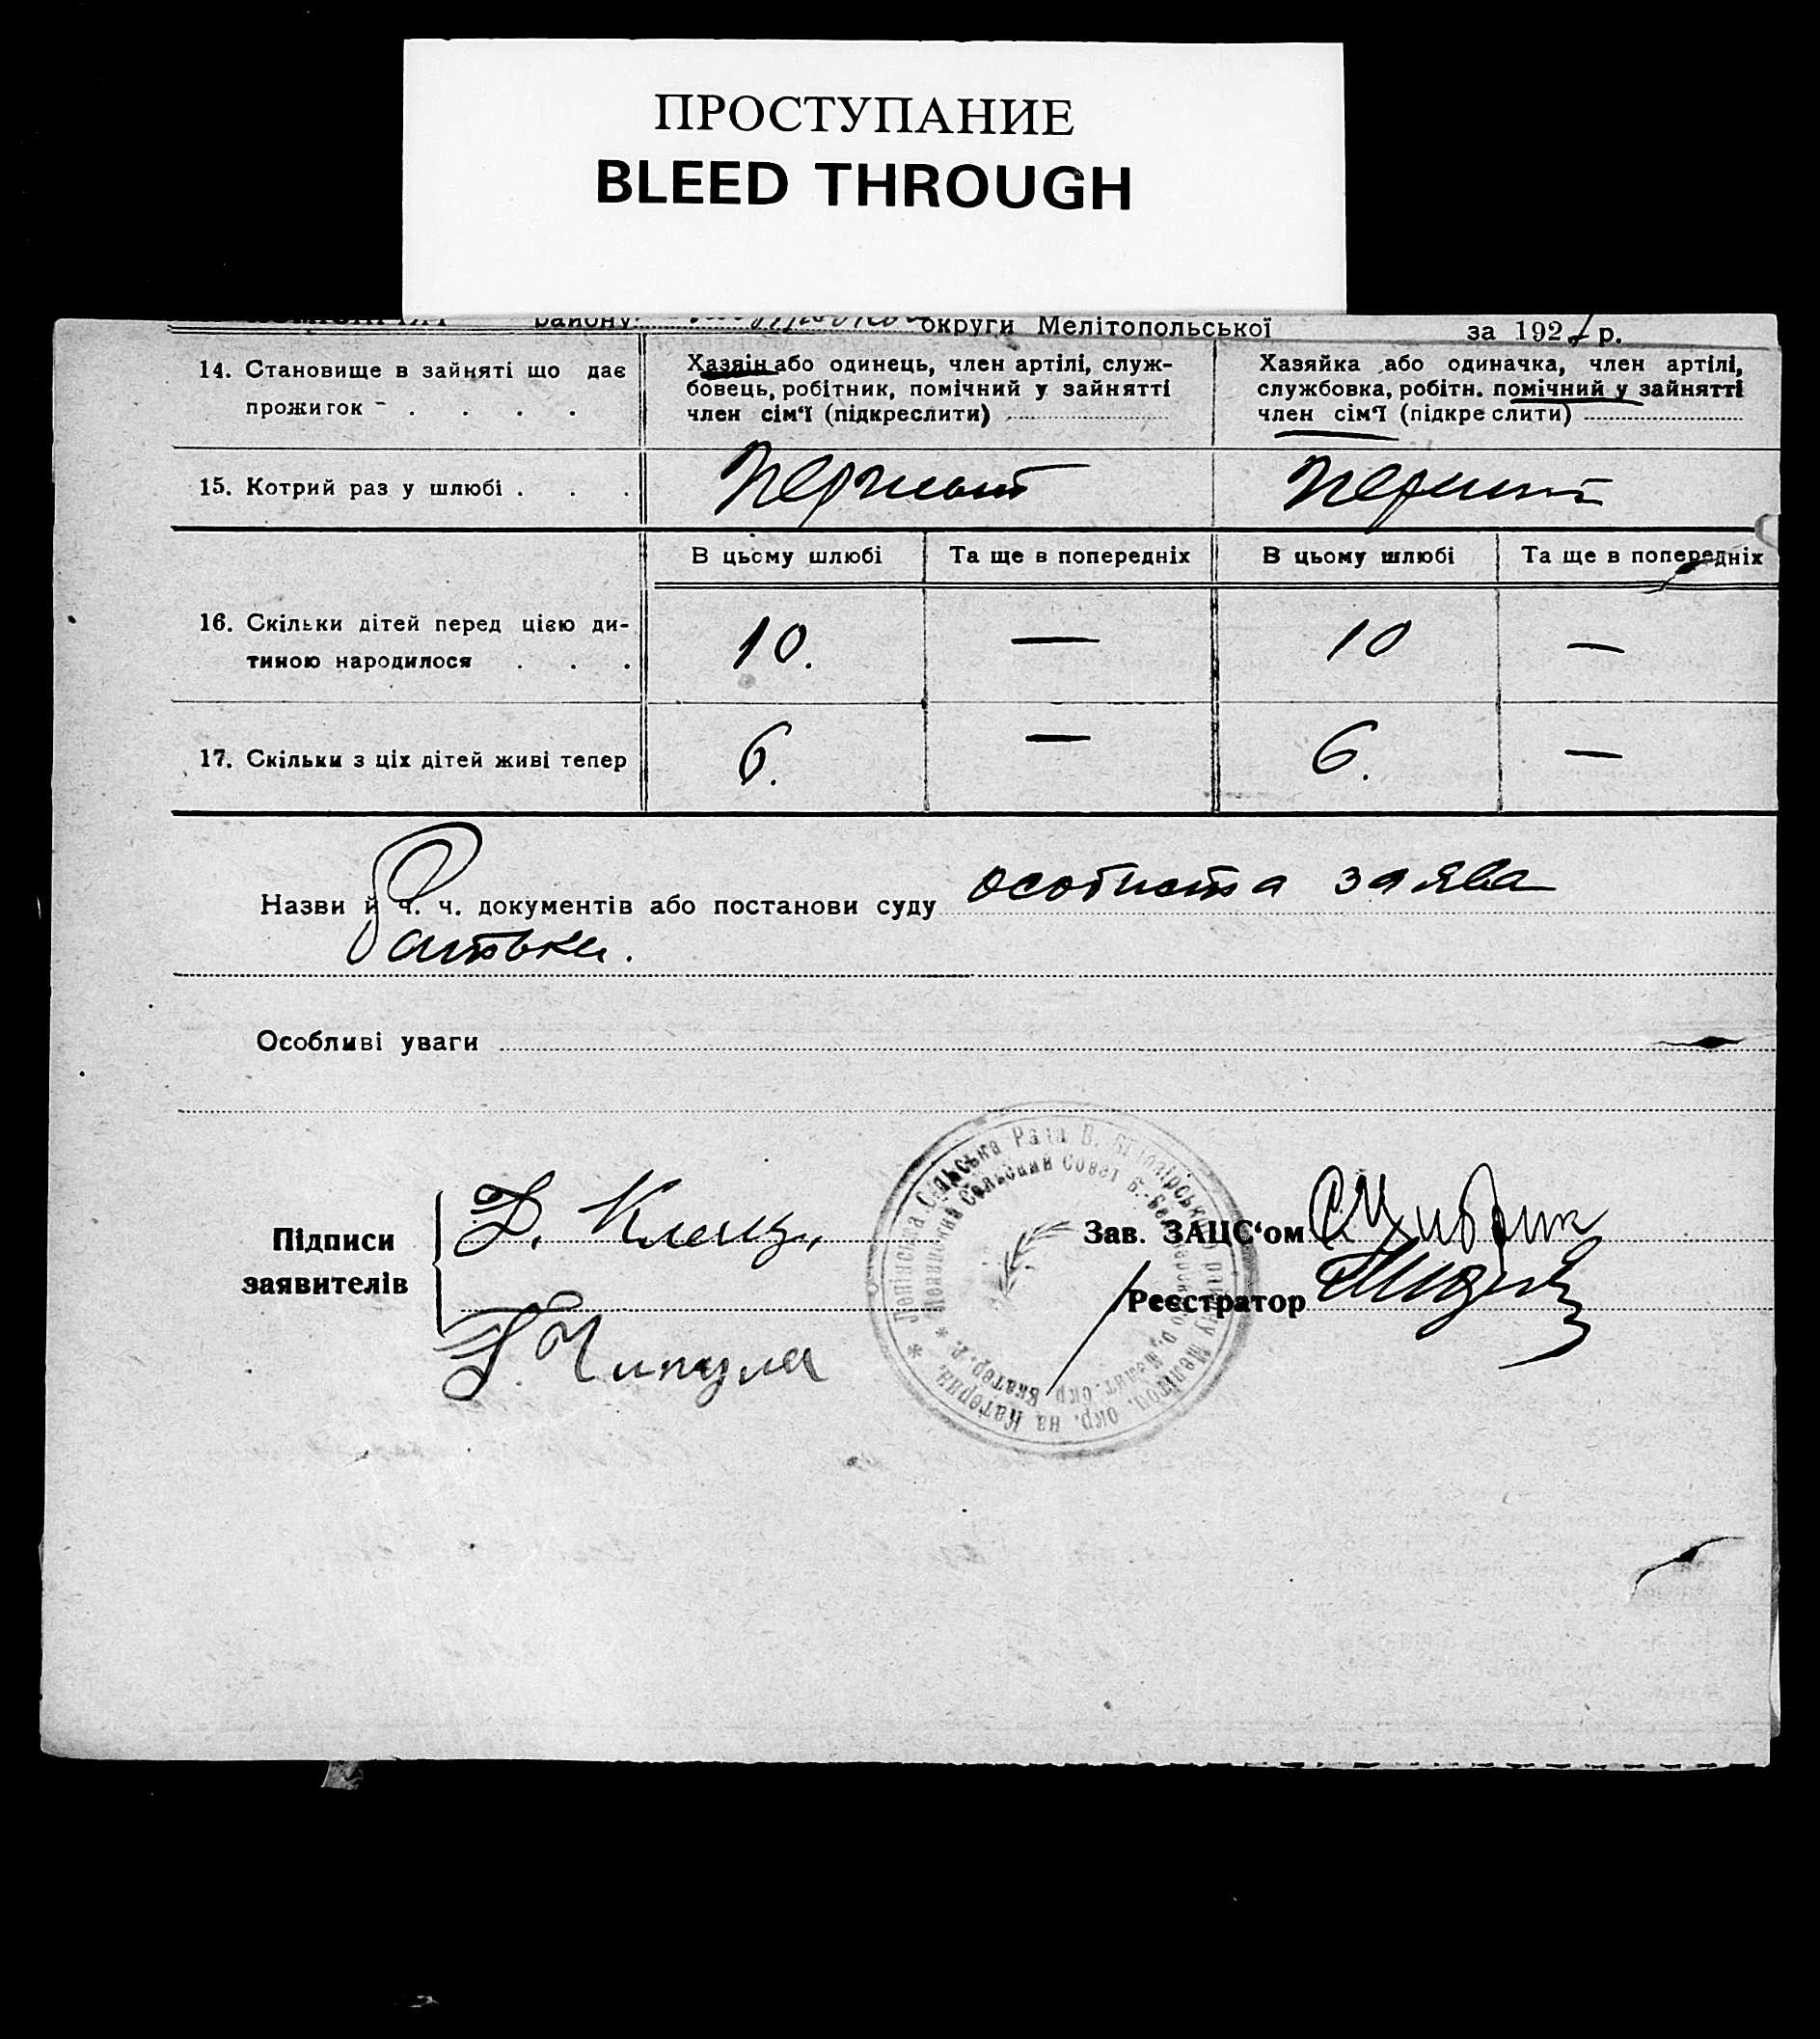 ПРОСТУПАНИЕ
BLEED THROUGH
району округи Мелітопольської за 192 р.
14. Становище в зайняті що дає прожиток - . . . .
Хазяін або одинець, член артілі, служ-
бовець, робітник, помічний у зайнятті
член сім'ї (підкреслити)
Хазяйка або одиначка, член артілі,
службовка, робітн. помічний у зайнятті
член сім'ї (підкре слити)
15. Котрий раз у шлюбі . . .
первый
В цьому шлюбі Та ще в попередніх В цьому шлюбі Та ще в попередніх
16. Скільки дітей перед цією ди-
тиною народилося . . .
10. — 10 —
17. Скільки з ціх дітей живі тепер 6. — 6. —
Назви й ч. ч. документів або постанови суду особиста заява
батька.
Особливі уваги
Підписи
заявителів
Зав. ЗАЦС‘ом
Реєстратор
Д. Клец
Чипула